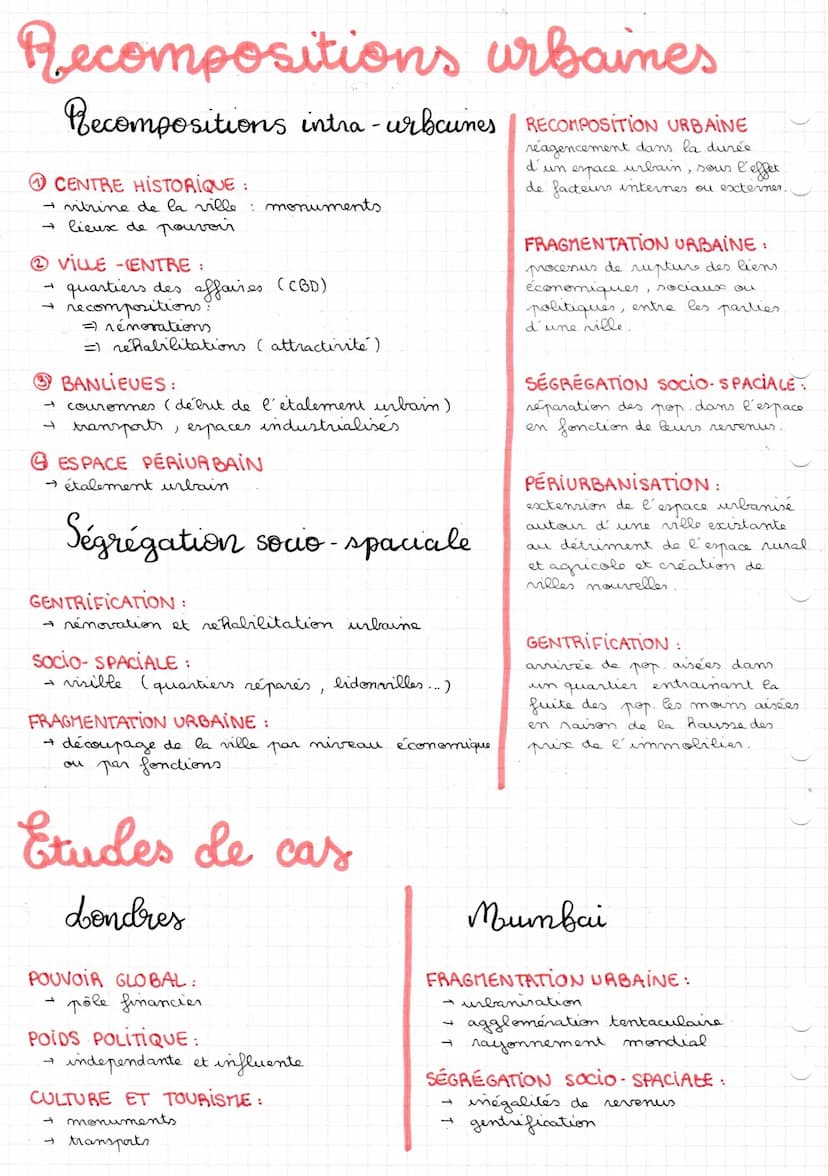 Recompositions urbaines
Recompositions intra-urbaines
① CENTRE HISTORIQUE :
→ vitrine de la ville : monuments
→ lieux de pouvoir
② VILLE-CENTRE :
→ quartiers des affaires (CBD)
→ recompositions :
⇒ rénovations
⇒ réhabilitations (attractivité)
③ BANLIEUES :
→ couronnes (début de l'étalement urbain)
→ transports, espaces industrialisés
④ ESPACE PÉRIURBAIN
→ étalement urbain
Ségrégation socio-spaciale
GENTRIFICATION :
→ rénovation et rehabilitation urbaine
SOCIO-SPACIALE :
→ visible (quartiers séparés, bidonvilles...)
FRAGMENTATION URBAINE :
→ découpage de la ville par niveau économique
ou par fonctions
RECOMPOSITION URBAINE
réagencement dans la durée
d'un espace urbain, sous l'effet
de facteurs internes ou externes.
FRAGMENTATION URBAINE :
processus de rupture des liens
économiques, sociaux ou
politiques, entre les parties
d'une ville.
SÉGRÉGATION SOCIO-SPACIALE :
séparation des pop. dans l'espace
en fonction de leurs revenus.
PÉRIURBANISATION :
extension de l'espace urbanisé
autour d'une ville existante
au détriment de l'espace rural
et agricole et création de
villes nouvelles.
GENTRIFICATION :
arrivée de pop. aisées dans
un quartier entrainant la
fuite des pop. les moins aisées
en raison de la hausse des
prix de l'immobilier.
Etudes de cas
Londres
POUVOIR GLOBAL :
→ pôle financier
POIDS POLITIQUE :
→ independante et influente
CULTURE ET TOURISME :
→ monuments
→ transports
Mumbai
FRAGMENTATION URBAINE :
→ urbanisation
→ agglomération tentaculaire
→ rayonnement mondial
SÉGRÉGATION SOCIO-SPACIALE :
→ inégalités de revenus
→ gentrification